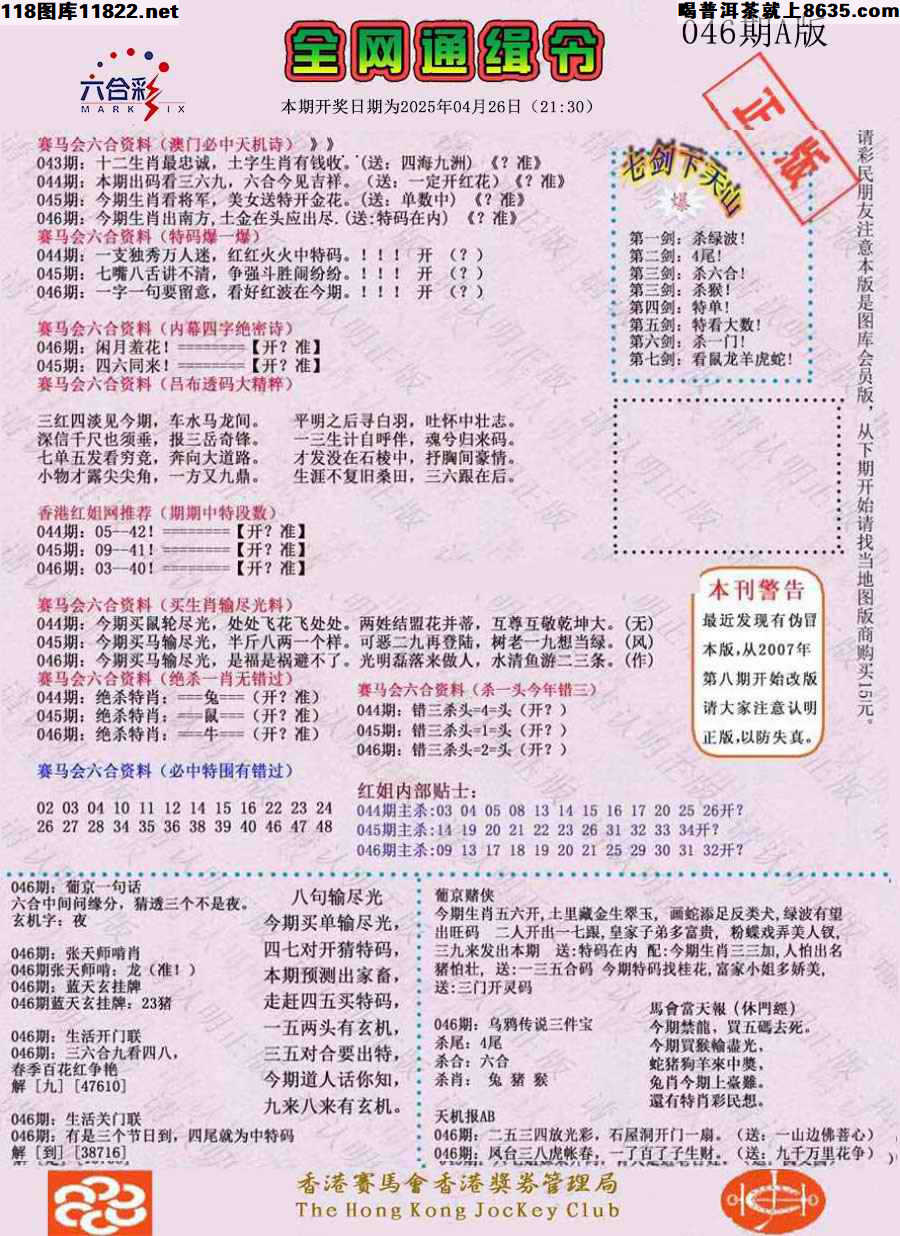 118图库11822.net
喝普洱茶就上8635.com
046期A版
全网通缉令
六合彩
MARK SIX
本期开奖日期为2025年04月26日（21:30）
正版
赛马会六合资料（澳门必中天机诗）》》
043期：十二生肖最忠诚，土字生肖有钱收。(送：四海九洲）《？准》
044期：本期出码看三六九，六合今见吉祥。（送：一定开红花）《？准》
045期：今期生肖看将军，美女送特开金花。(送：单数中）《？准》
046期：今期生肖出南方,土金在头应出尽.(送:特码在内）《？准》
赛马会六合资料（特码爆一爆）
044期：一支独秀万人迷，红红火火中特码。！！！ 开 （？）
045期：七嘴八舌讲不清，争强斗胜闹纷纷。！！！ 开 （？）
046期：一字一句要留意，看好红波在今期。！！！ 开 （？）
赛马会六合资料（内幕四字绝密诗）
046期：闲月羞花！========【开？准】
045期：四六同来！========【开？准】
赛马会六合资料（吕布透码大精粹）
三红四淡见今期，车水马龙间。 平明之后寻白羽，吐怀中壮志。
深信千尺也须垂，报三岳奇锋。 一三生计自呼伴，魂兮归来码。
七单五发看穷竞，奔向大道路。 才发没在石棱中，抒胸间豪情。
小物才露尖尖角，一方又九鼎。 生涯不复旧桑田，三六跟在后。
香港红姐网推荐（期期中特段数）
044期：05--42！========【开？准】
045期：09--41！========【开？准】
046期：03--40！========【开？准】
赛马会六合资料（买生肖输尽光料）
044期：今期买鼠轮尽光，处处飞花飞处处。两姓结盟花并蒂，互尊互敬乾坤大。(无)
045期：今期买马输尽光，半斤八两一个样。可恶二九再登陆，树老一九想当绿。(风)
046期：今期买马输尽光，是福是祸避不了。光明磊落来做人，水清鱼游二三条。(作)
赛马会六合资料（绝杀一肖无错过）
044期：绝杀特肖：===兔===（开？准）
045期：绝杀特肖：===鼠===（开？准）
046期：绝杀特肖：===牛===（开？准）
赛马会六合资料（杀一头今年错三）
044期：错三杀头=4=头（开？）
045期：错三杀头=1=头（开？）
046期：错三杀头=2=头（开？）
赛马会六合资料（必中特围有错过）
02 03 04 10 11 12 14 15 16 22 23 24
26 27 28 34 35 36 38 39 40 46 47 48
红姐内部贴士：
044期主杀:03 04 05 08 13 14 15 16 17 20 25 26开？
045期主杀:14 19 20 21 22 23 26 31 32 33 34开？
046期主杀:09 13 17 18 19 20 21 25 29 30 31 32开？
七剑下天山
爆
第一剑：杀绿波！
第二剑：4尾！
第三剑：杀六合！
第三剑：杀猴！
第四剑：特单！
第五剑：特看大数！
第六剑：杀一门！
第七剑：看鼠龙羊虎蛇！
请彩民朋友注意本版是图库会员版，从下期开始请找当地图版商购买15元。
本刊警告
最近发现有伪冒
本版,从2007年
第八期开始改版
请大家注意认明
正版,以防失真。
046期：葡京一句话
六合中间问缘分，猜透三个不是夜。
玄机字：夜
046期：张天师啃肖
046期张天师啃：龙（准！）
046期：蓝天玄挂牌
046期蓝天玄挂牌：23猪
046期：生活开门联
046期：三六合九看四八，
春季百花红争艳
解［九］[47610]
046期：生活关门联
046期：有是三个节日到，四尾就为中特码
解［到］[38716]
八句输尽光
今期买单输尽光，
四七对开猜特码，
本期预测出家畜，
走赶四五买特码，
一五两头有玄机，
三五对合要出特，
今期道人话你知，
九来八来有玄机。
葡京赌侠
今期生肖五六开,土里藏金生翠玉，画蛇添足反类犬,绿波有望
出旺码 二人开出一七跟,皇家子弟多富贵，粉蝶戏弄美人钗,
三九来发出本期 送:特码在内 配:今期生肖三三加,人怕出名
猪怕壮，送:一三五合码 今期特码找桂花,富家小姐多娇美,
送:三门开灵码
046期：乌鸦传说三件宝
杀尾：4尾
杀合：六合
杀肖： 兔 猪 猴
馬會當天報（休門經）
今期禁龍，買五碼去死。
今期買猴輸盡光，
蛇猪狗羊來中獎，
兔肖今期上臺難。
還有特肖彩民想。
天机报AB
046期：二五三四放光彩，石屋洞开门一扇。（送：一山边佛菩心）
046期：凤台三八虎帐春，一了百了子生财。（送：九千万里花争）
香港賽馬會香港獎券管理局
The Hong Kong JocKey Club